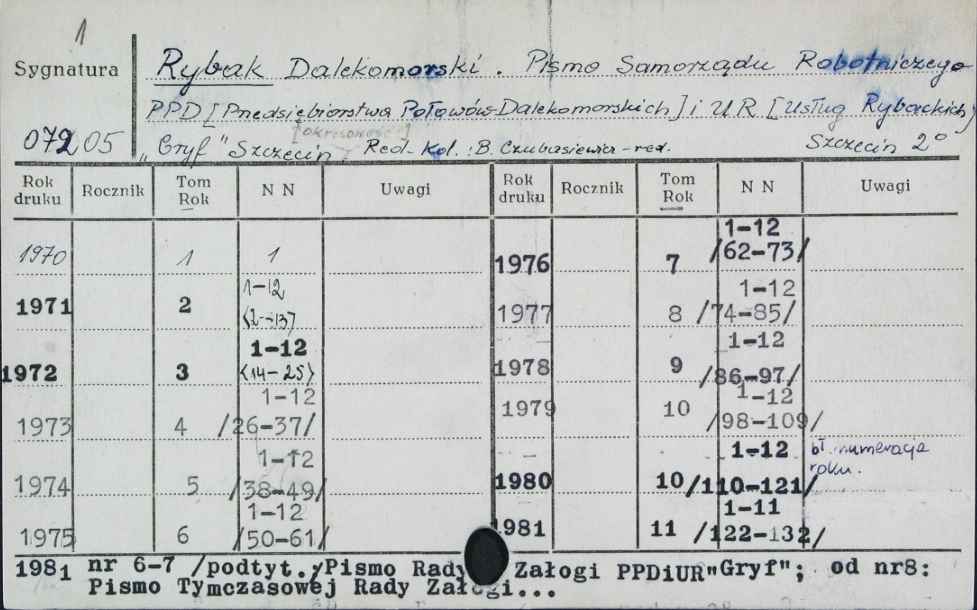 1
Sygnatura
Rybak Dalekomorski. Pismo Samorządu Robotniczego
PPD [Przedsiębiorstwa Połowów Dalekomorskich] i UR [Usług Rybackich]
072 05
"Gryf" Szczecin Red. Kol.: B. Czubasiewicz-red. Szczecin 2°
Rok druku Rocznik Tom Rok N N Uwagi Rok druku Rocznik Tom Rok N N Uwagi
1970 1 1
1971 2 1-12 (2-13)
1972 3 1-12 (14-25)
1973 4 1-12 /26-37/
1974 5 1-12 /38-49/
1975 6 1-12 /50-61/
1976 7 1-12 /62-73/
1977 8 1-12 /74-85/
1978 9 1-12 /86-97/
1979 10 1-12 /98-109/
1980 10 1-12 /110-121/ bł. numeracja roku.
1981 11 1-11 /122-132/
1981 nr 6-7 /podtyt./Pismo Rady Załogi PPDiUR"Gryf"; od nr8:
Pismo Tymczasowej Rady Załogi...